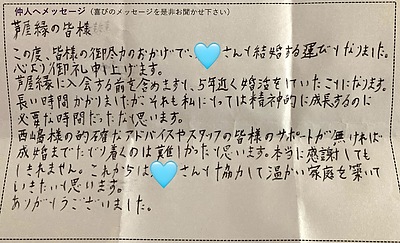 仲人へメッセージ（喜びのメッセージを是非お聞かせ下さい）
芦屋縁の皆様
この度、皆様の御尽力のおかげで、さんと結婚する運びとなりました。
心より御礼申し上げます。
芦屋縁に入会する前を含めますと、5年近く婚活をしていたことになります。
長い時間かかりましたが、それも私にとっては精神的に成長するのに
必要な時間だったと思います。
西島様の的確なアドバイスやスタッフの皆様のサポートが無ければ
成婚までたどり着くのは難しかったと思います。本当に感謝しても
しきれません。これからはさんと協力して温かい家庭を築いて
いきたいと思います。
ありがとうございました。